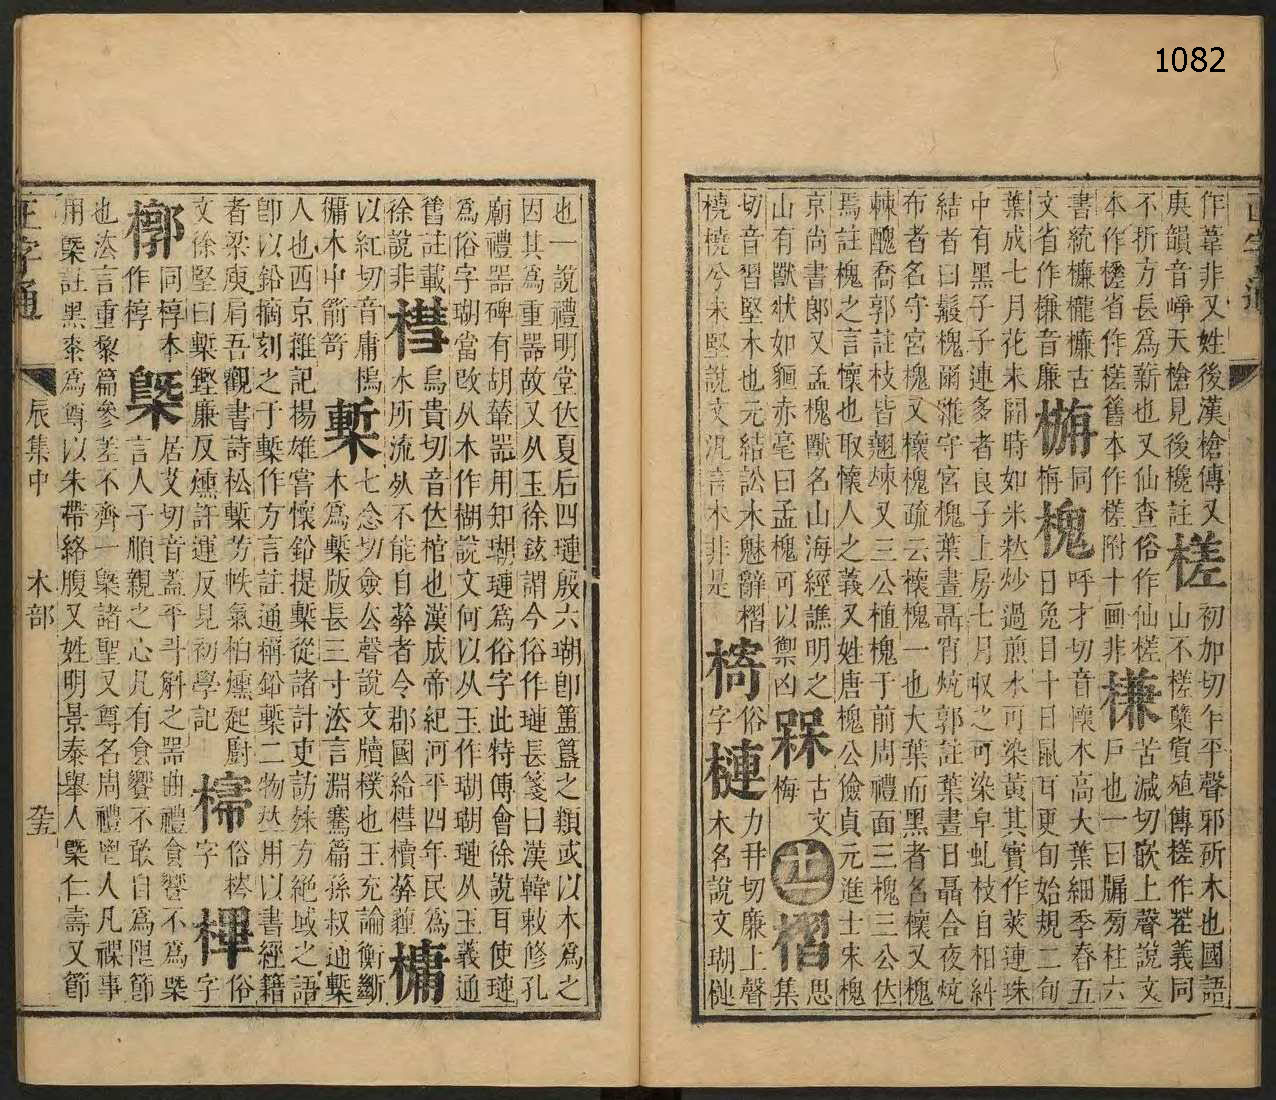 1082
作葦非又姓後漢槍傳又
庚韻音崢天槍見後欃註 槎 初加切乍平聲邪斫木也國語山不槎櫱貨殖傳槎作茬義同
不析方長爲薪也又仙查俗作仙槎 槏 苦減切嵌上聲說文戶也一曰牖旁柱六
本作㯉省作槎舊本作槎附十画非
書統㯲櫳㯲古文省作槏音廉 㭽 同梅 槐 呼才切音懷木高大葉細季春五日兔目十日鼠耳更旬始規二旬
葉成七月花未開時如米粒炒過煎水可染黃其實作莢連珠
中有黑子子連多者良子上房七月収之可染皁虬枝自相糾
結者曰鬈槐爾雅守宮槐葉晝聶宵炕郭註葉晝日聶合夜炕
布者名守宮槐又櫰槐疏云櫰槐一也大葉而黑者名櫰又槐
棘醜喬郭註枝皆翹竦又三公植槐于前周禮面三槐三公位
焉註槐之言懷也取懷人之義又姓唐槐公儉貞元進士宋槐
京尚書郎又孟槐獸名山海經譙明之
山有獸狀如貆赤毫曰孟槐可以禦凶 槑 古文梅 十一 槢 思集
切音習堅木也元結訟木魅辭槢
橈橈兮未堅說文汎言木非是 㯏 俗字 槤 力幷切廉上聲木名說文瑚槤
也一說禮明堂位夏后四璉殷六瑚卽簠簋之類或以木爲之
因其爲重器故又从玉徐鉉謂今俗作璉長箋曰漢韓敕修孔
廟禮器碑有胡輦器用知瑚璉爲俗字此特傳會徐說耳使璉
爲俗字瑚當改从木作楜說文何以从玉作瑚瑚璉从玉義通
舊註載徐說非 槥 烏貴切音位棺也漢成帝紀河平四年民爲水所流死不能自葬者令郡國給槥櫝葬薶 槦
以紅切音庸槝槦木中箭笴 槧 七念切僉去聲說文牘樸也王充論衡斷木爲槧版長三寸法言淵騫篇孫叔通槧
人也西京雜記揚雄嘗懷鉛提槧從諸計吏訪殊方絕域之語
卽以鉛摘刻之于槧作方言註通稱鉛槧二物竝用以書經籍
者梁庾肩吾觀書詩松槧芳帙氣柏燻起廚
文徐堅曰槧鏗廉反燻許運反見初學記 㯌 俗櫁字 樿 俗字
槨 同椁本作椁 槩 居艾切音蓋平斗斛之器曲禮食饗不爲槩言人子順親之心凡有食饗不敢自爲限節
也法言重黎篇參差不齊一槩諸聖又尊名周禮鬯人凡祼事
用槩註黑桼爲尊以朱帶絡腹又姓明景泰舉人槩仁壽又節
正字通 辰集中 木部 九五